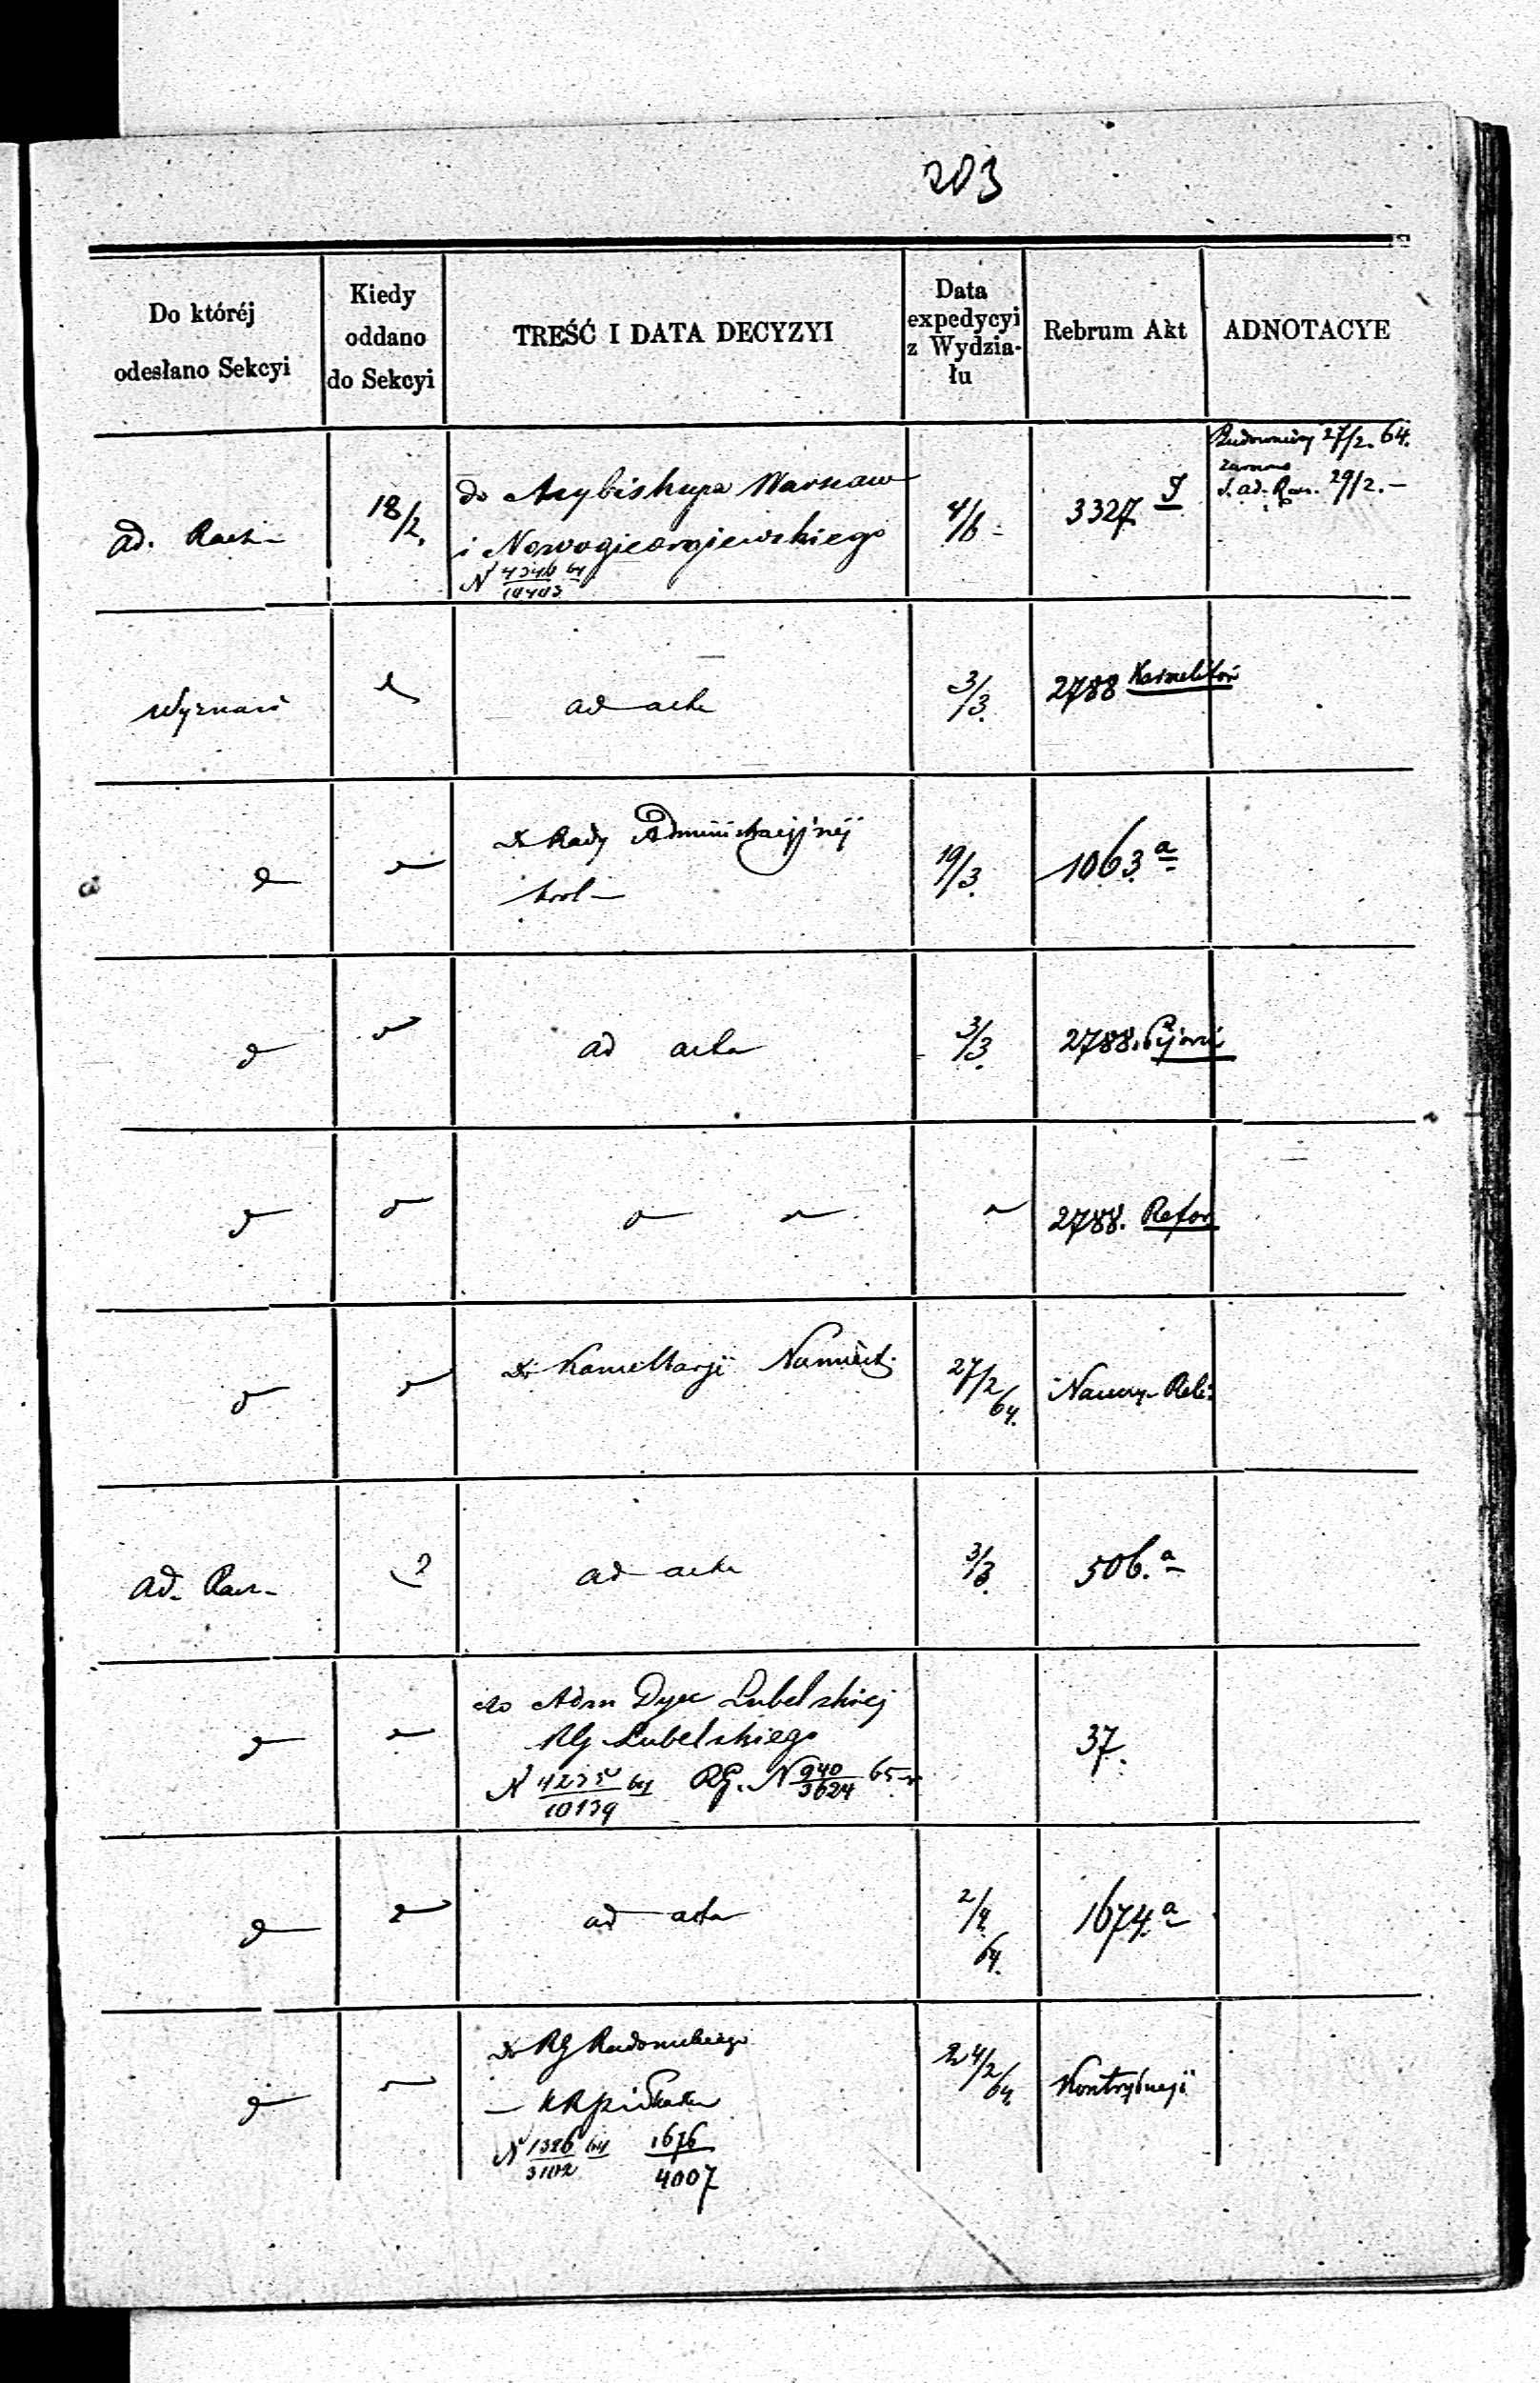 203
Do któréj odesłano Sekcyi
Kiedy oddano do Sekcyi
TREŚĆ I DATA DECYZYI
Data expedycyi z Wydziału
Rebrum Akt
ADNOTACYE
ad. Rach 18/2. do Arcybiskupa Warszaw 4/6 3327 Budowniczy 27/2. 64.
i Nowogieorgiewskiego S. ad. Rac. 29/2.
N 4346 64
10403
Wyznań ad acta 3/3. 2788 Karmelitów
Do Rady Administracyjnéj 19/3. 1063 a
Krol
ad acta 3/3. 2788. Pijarów
2788. Refor
Do Kancellaryi Namiest. 27/2 64. Nauczy. Reli:
ad. Rach ad acta 3/3. 506. a
do Adm Dyec Lubelskiej 37.
RG Lubelskiego
N 4235 64 RG. N 940 65
10139 3624
ad acta 2/4. 64. 1674. a
Do RG Radomskiego 24/2 64. Kontrybucyi
N 1326 64 1676
3102 4007